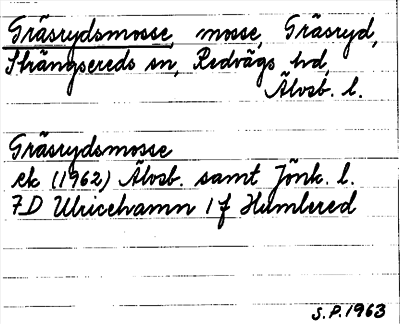 Gräsrydsmosse, mosse, Gräsryd,
Strängsereds sn, Redvägs hd,
Älvsb. l.
Gräsrydsmosse
ek (1962) Älvsb. samt Jönk. l.
7D Ulricehamn 1 f Humlered
S.P. 1963